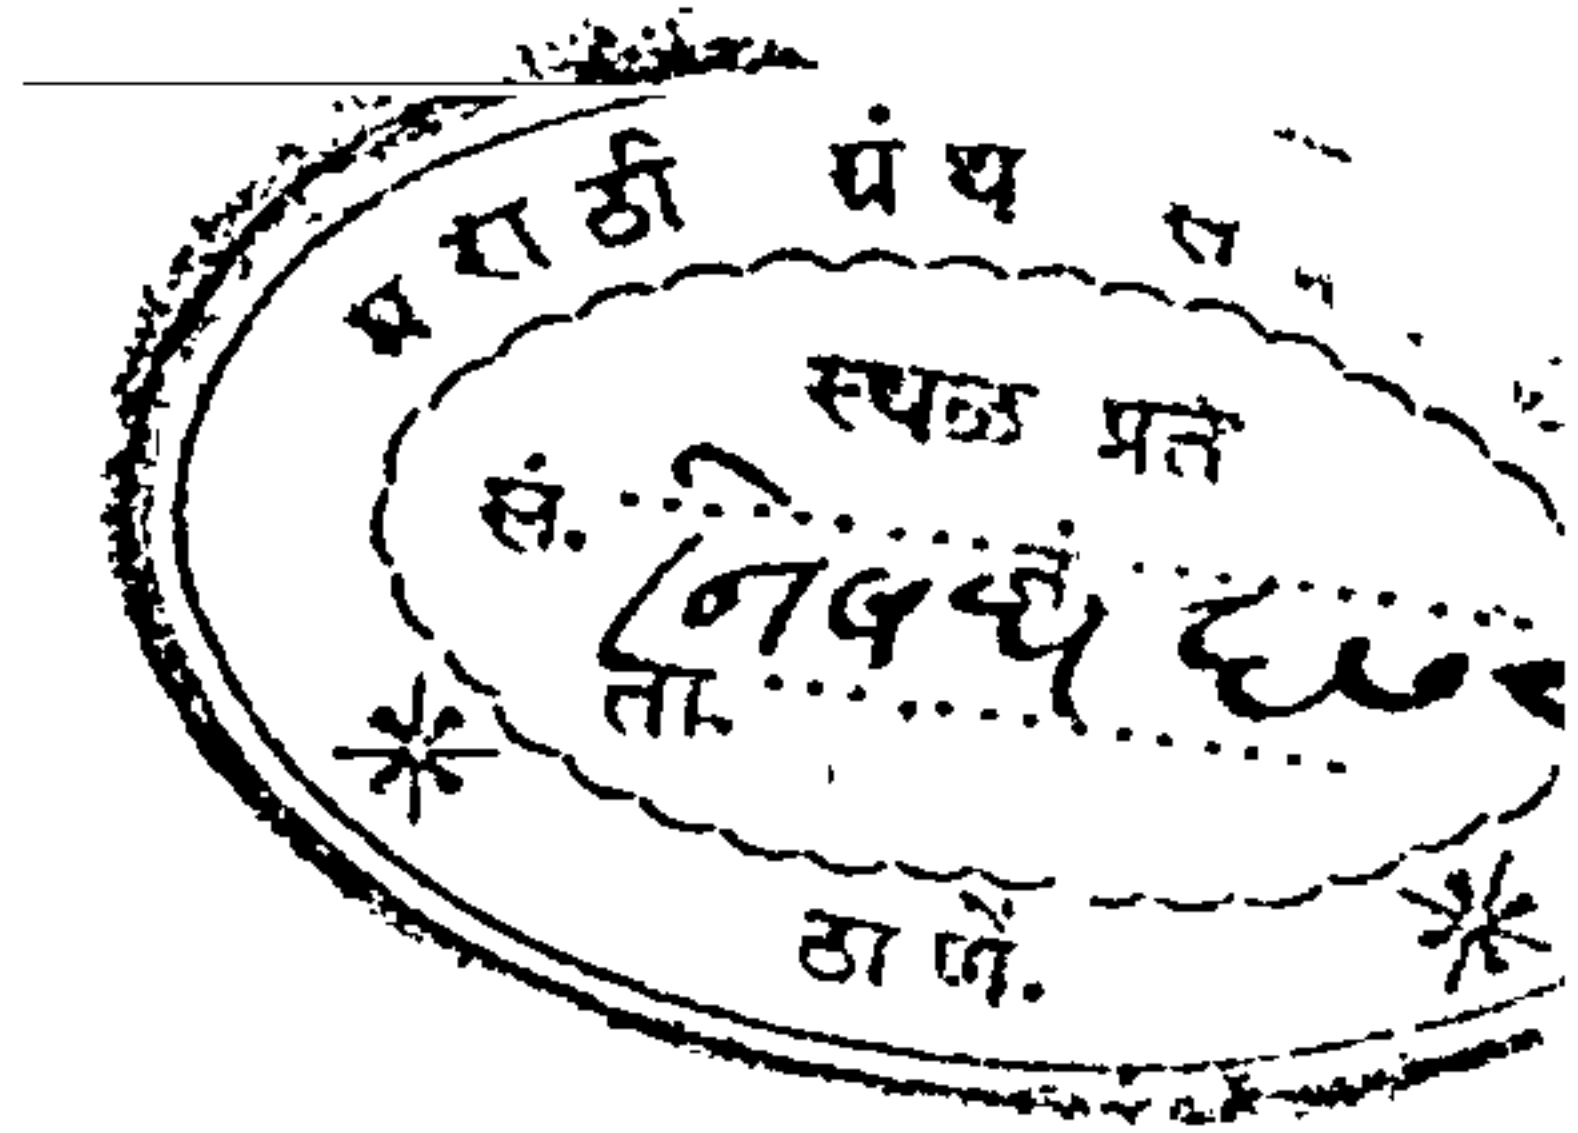 मराठी ग्रंथ सं
स्थळ प्रत
सं.
निबंध
ता.
ठाणें.